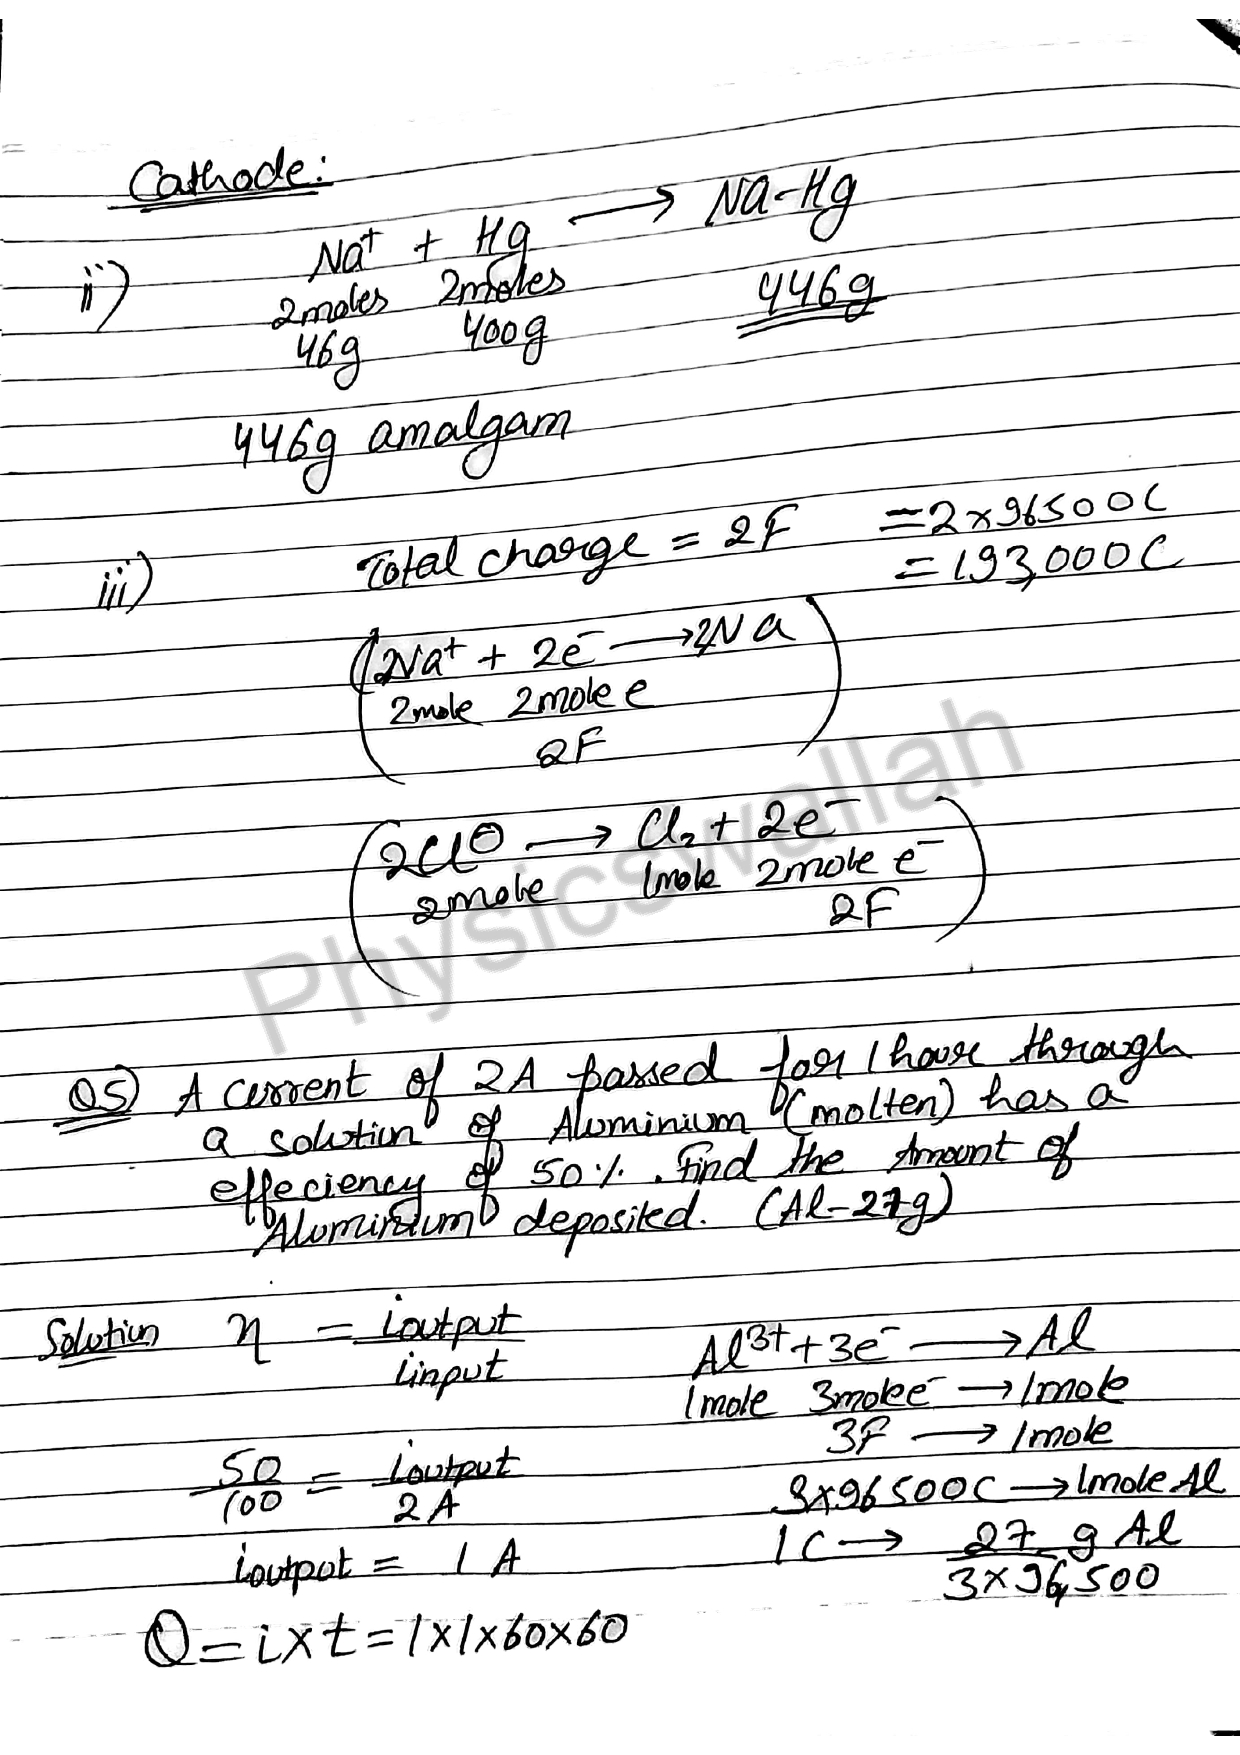 Cathode:
ii) Na⁺ + Hg ⟶ Na-Hg
2moles 2moles 446g
46g 400g
446g amalgam
iii) Total charge = 2F = 2×96500C
= 193,000C
(2Na⁺ + 2e⁻ ⟶ 2Na)
2mole 2mole e
2F
(2Cl⊖ ⟶ Cl₂ + 2e⁻)
2mole 1mole 2mole e⁻
2F
Physicswallah
Q5) A current of 2A passed for 1 hour through
a solution of Aluminium (molten) has a
effeciency of 50%. Find the Amount of
Aluminium deposited. (Al-27g)
Solution η = ioutput / iinput
Al³⁺ + 3e⁻ ⟶ Al
1mole 3mole e⁻ → 1mole
3F ⟶ 1mole
50/100 = ioutput / 2A
3×96500C → 1mole Al
ioutput = 1 A
1C → 27 g Al / 3×96,500
Q = i×t = 1×1×60×60